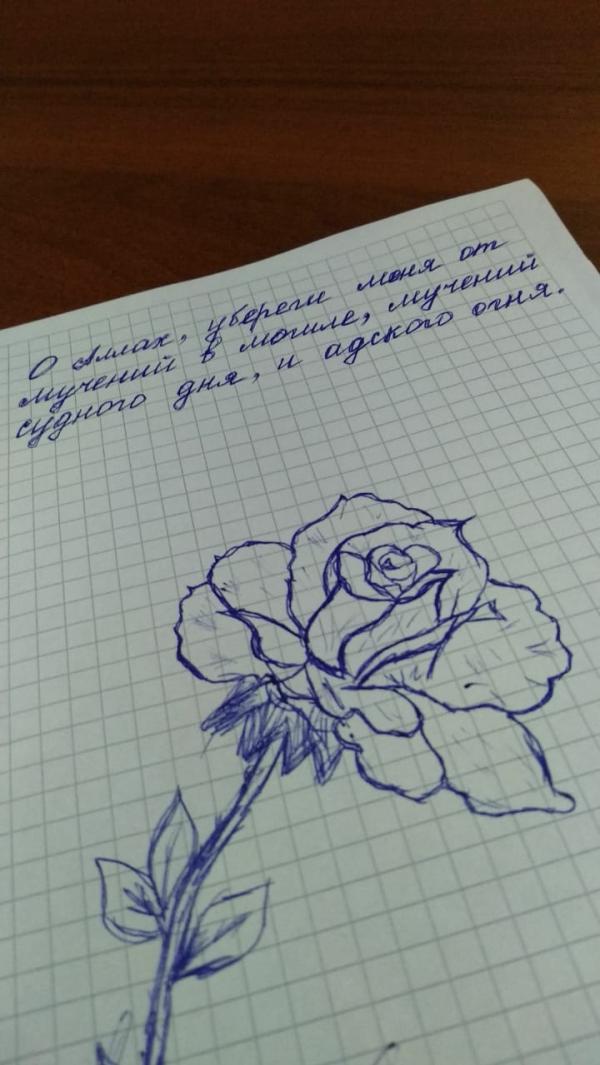 О Аллах, убереги меня от
мучений в могиле, мучений
судного дня, и адского огня.